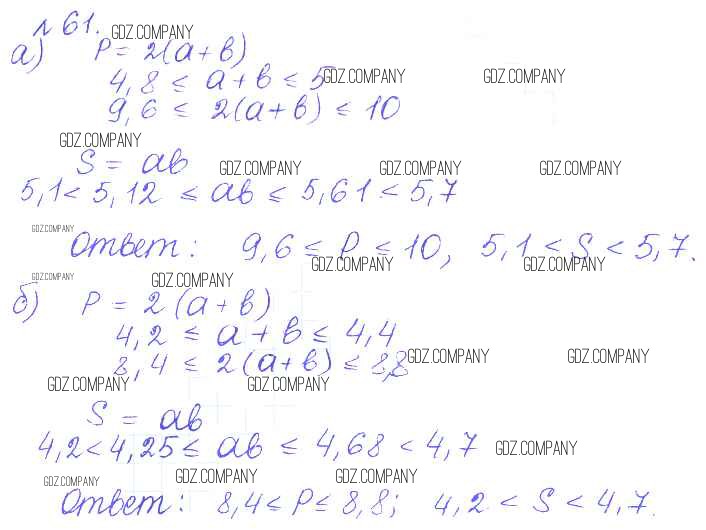 № 61. GDZ.COMPANY
а) P = 2(a + b)
4,8 ≤ a + b ≤ 5 GDZ.COMPANY GDZ.COMPANY
9,6 ≤ 2(a + b) ≤ 10
GDZ.COMPANY
S = ab GDZ.COMPANY GDZ.COMPANY GDZ.COMPANY
5,1 < 5,12 ≤ ab ≤ 5,61 < 5,7
GDZ.COMPANY
Ответ: 9,6 ≤ P ≤ 10, 5,1 < S < 5,7.
GDZ.COMPANY GDZ.COMPANY
GDZ.COMPANY GDZ.COMPANY
б) P = 2(a + b)
4,2 ≤ a + b ≤ 4,4
8,4 ≤ 2(a + b) ≤ 8,8 GDZ.COMPANY GDZ.COMPANY
GDZ.COMPANY GDZ.COMPANY
S = ab
4,2 < 4,25 ≤ ab ≤ 4,68 < 4,7 GDZ.COMPANY
GDZ.COMPANY GDZ.COMPANY GDZ.COMPANY
Ответ: 8,4 ≤ P ≤ 8,8; 4,2 < S < 4,7.